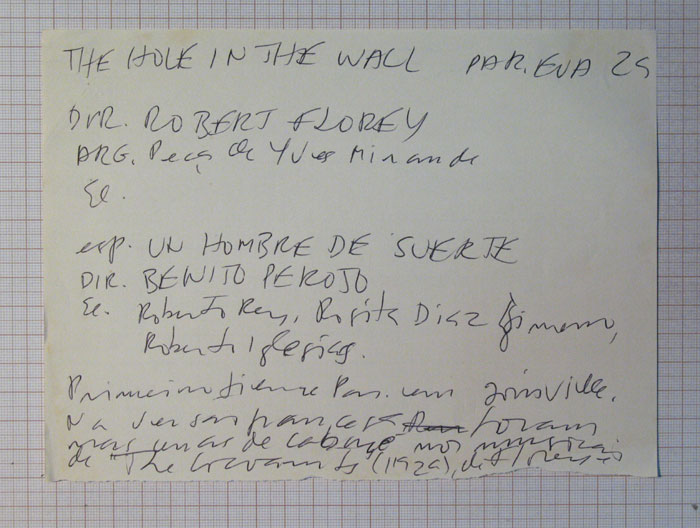 THE HOLE IN THE WALL PAR. EUA 29
DIR. ROBERT FLOREY
ARG. Peça de Yves Mirande
El.
esp. UN HOMBRE DE SUERTE
DIR. BENITO PEROJO
El. Roberto Rey, Rosita Diaz Gimeno,
Roberto Iglesias.
Primeiro filme Par. em Joinville.
Na versão francesa foram
de "The (1929), de Florey